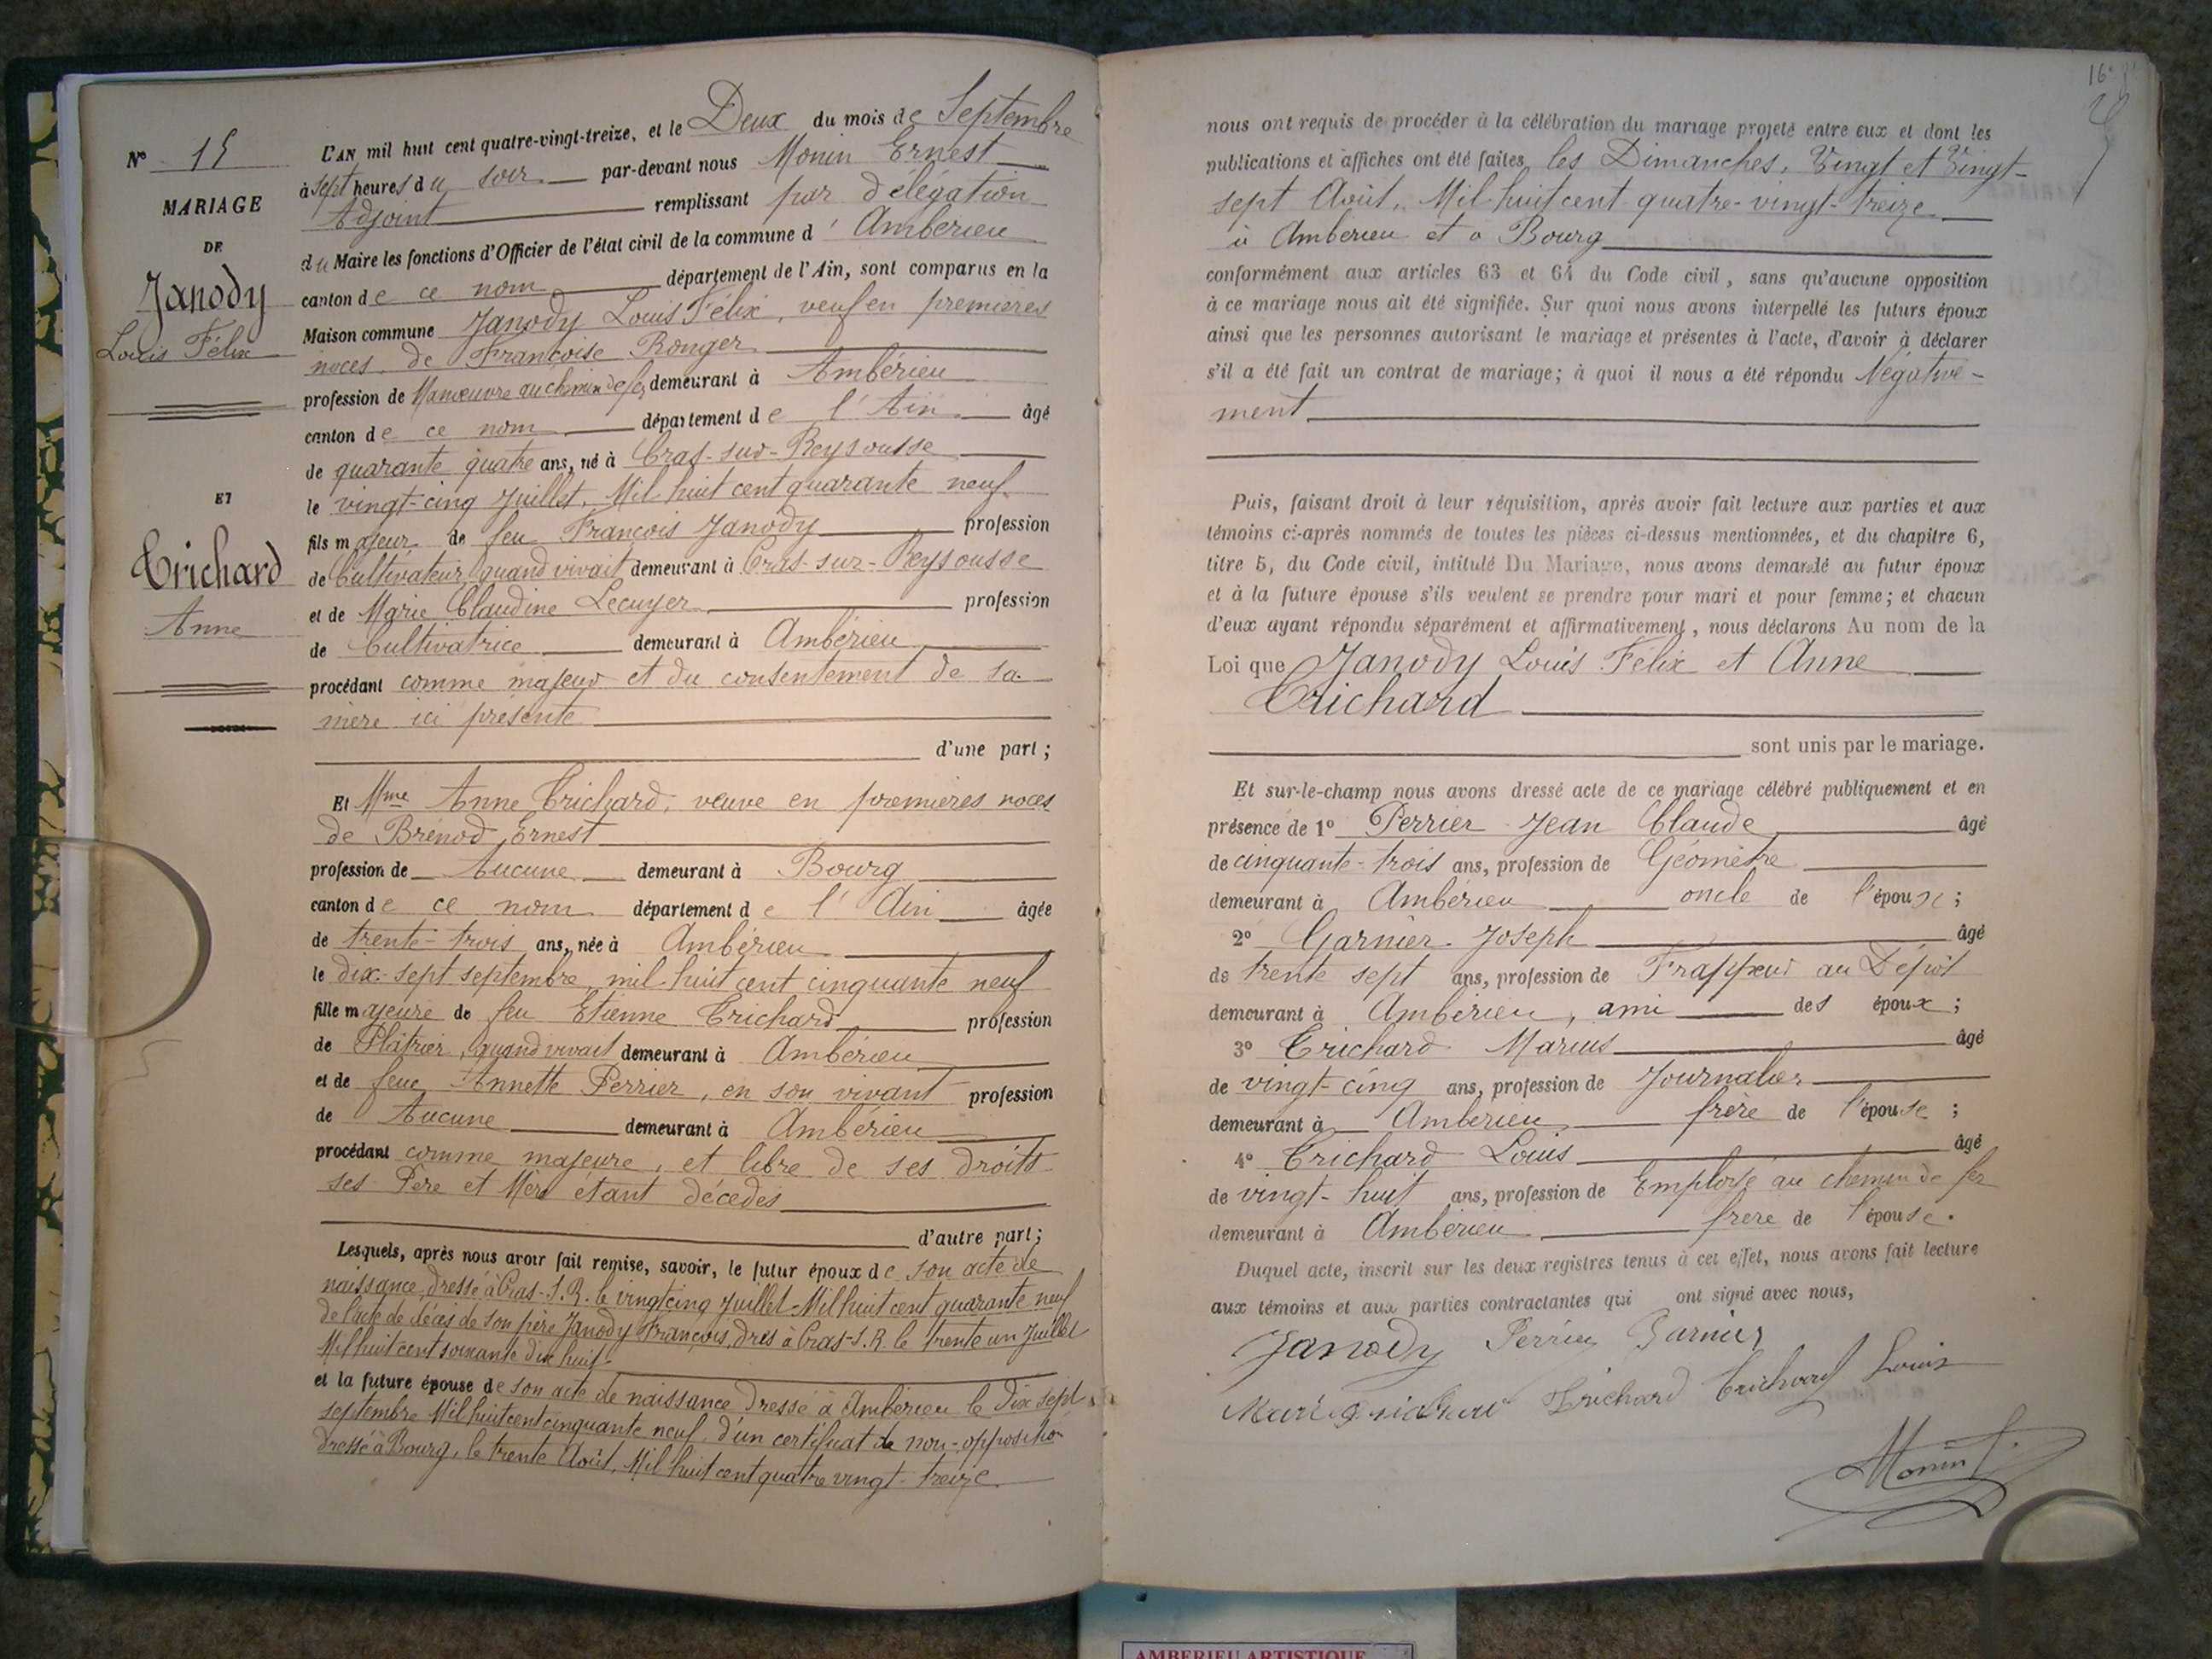 N° 15
MARIAGE
DE
Janody
Louis Félix
ET
Trichard
Anne
L'AN mil huit cent quatre-vingt-treize, et le Deux du mois de Septembre
à sept heures du soir par-devant nous Monin Ernest
Adjoint remplissant par délégation
du Maire les fonctions d'Officier de l'état civil de la commune d'Ambérieu
canton de ce nom département de l'Ain, sont comparus en la
Maison commune Janody Louis Félix, veuf en premières
noces de Françoise Ronger
profession de Manœuvre au chemin de fer demeurant à Ambérieu
canton de ce nom département de l'Ain âgé
de quarante quatre ans, né à Cras-sur-Reyssousse
le vingt-cinq Juillet, Mil huit cent quarante neuf
fils majeur de feu François Janody profession
de Cultivateur, quand vivait demeurant à Cras-sur-Reysousse
et de Marie Claudine Lecuyer profession
de Cultivatrice demeurant à Ambérieu
procédant comme majeur et du consentement de sa
mère ici présente
d'une part ;
Et Mme Anne Trichard, veuve en premières noces
de Brénod Ernest
profession de Aucune demeurant à Bourg
canton de ce nom département de l'Ain âgée
de trente-trois ans, née à Ambérieu
le dix-sept septembre, mil huit cent cinquante neuf
fille majeure de feu Etienne Trichard profession
de Plâtrier, quand vivait demeurant à Ambérieu
et de feue Annette Perrier, en son vivant profession
de Aucune demeurant à Ambérieu
procédant comme majeure, et libre de ses droits
ses Père et Mère étant décédés
d'autre part ;
Lesquels, après nous avoir fait remise, savoir, le futur époux de son acte de
naissance, dressé à Cras-S.R. le vingt cinq Juillet Mil huit cent quarante neuf
de l'acte de décès de son père Janody François, dres à Cras-S.R. le trente un Juillet
Mil huit cent soixante dix huit
et la future épouse de son acte de naissance dressé à Ambérieu le dix sept
septembre Mil huit cent cinquante neuf d'un certificat de non-opposition
dressé à Bourg, le trente Août, Mil huit cent quatre vingt-treize
nous ont requis de procéder à la célébration du mariage projeté entre eux et dont les
publications et affiches ont été faites les Dimanches, Vingt et Vingt-
sept Août, Mil huit cent quatre-vingt-treize
à Ambérieu et à Bourg
conformément aux articles 63 et 64 du Code civil, sans qu'aucune opposition
à ce mariage nous ait été signifiée. Sur quoi nous avons interpellé les futurs époux
ainsi que les personnes autorisant le mariage et présentes à l'acte, d'avoir à déclarer
s'il a été fait un contrat de mariage ; à quoi il nous a été répondu Négative-
ment
Puis, faisant droit à leur réquisition, après avoir fait lecture aux parties et aux
témoins ci-après nommés de toutes les pièces ci-dessus mentionnées, et du chapitre 6,
titre 5, du Code civil, intitulé Du Mariage, nous avons demandé au futur époux
et à la future épouse s'ils veulent se prendre pour mari et pour femme ; et chacun
d'eux ayant répondu séparément et affirmativement, nous déclarons Au nom de la
Loi que Janody Louis Félix et Anne
Trichard
sont unis par le mariage.
Et sur-le-champ nous avons dressé acte de ce mariage célébré publiquement et en
présence de 1° Perrier Jean Claude âgé
de cinquante-trois ans, profession de Géomètre
demeurant à Ambérieu oncle de l'épouse ;
2° Garnier Joseph âgé
de trente sept ans, profession de Frappeur au Dépôt
demeurant à Ambérieu, ami des époux ;
3° Trichard Marius âgé
de vingt-cinq ans, profession de Journalier
demeurant à Ambérieu frère de l'épouse ;
4° Trichard Louis âgé
de vingt-huit ans, profession de Employé au chemin de fer
demeurant à Ambérieu frère de l'épouse.
Duquel acte, inscrit sur les deux registres tenus à cet effet, nous avons fait lecture
aux témoins et aux parties contractantes qui ont signé avec nous,
Janody Perrier Garnier
Trichard Trichard Louis
Monin
AMBERIEU ARTISTIQUE